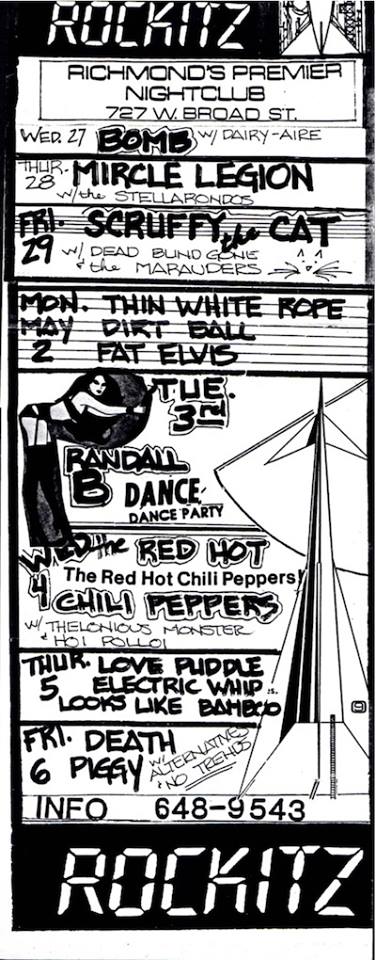 ROCKITZ
RICHMOND'S PREMIER
NIGHTCLUB
727 W. BROAD ST.
WED. 27 BOMB W/ DAIRY-AIRE
THUR. 28 MIRCLE LEGION
w/the STELLARONDOS
FRI. 29 SCRUFFY the CAT
W/ DEAD BLIND GONE
& the MARAUDERS
MON. THIN WHITE ROPE
MAY DIRT BALL
2 FAT ELVIS
TUE.
3rd
RANDALL
B DANCE
DANCE PARTY
WED the RED HOT
The Red Hot Chili Peppers!
4 CHILI PEPPERS
W/ THELONIOUS MONSTER
& HOI POLLOI
THUR. LOVE PUDDLE
5 ELECTRIC WHIP
LOOKS LIKE BAMBOO
FRI. DEATH
6 PIGGY W/ ALTERNATIVES
& NO TRENDS
INFO 648-9543
ROCKITZ